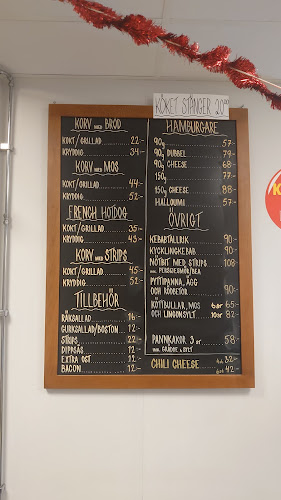 KÖKET STÄNGER 20.00
KORV MED BRÖD
KOKT/GRILLAD 22:-
KRYDDIG 34:-
KORV MED MOS
KOKT/GRILLAD 44:-
KRYDDIG 52:-
FRENCH HOTDOG
KOKT/GRILLAD 35:-
KRYDDIG 43:-
KORV MED STRIPS
KOKT/GRILLAD 45:-
KRYDDIG 52:-
TILLBEHÖR
RÄKSALLAD 16:-
GURKSALLAD/BOSTON 12:-
STRIPS 22:-
DIPPSÅS 12:-
EXTRA OST 11:-
BACON 12:-
HAMBURGARE
90g 57:-
90g DUBBEL 79:-
90g CHEESE 68:-
150g 77:-
150g CHEESE 88:-
HALLOUMI 57:-
ÖVRIGT
KEBABTALLRIK 90:-
KYCKLINGKEBAB 90:-
NÖTBIT MED STRIPS 108:-
INK. PERSILJESMÖR/BEA
PYTTIPANNA, ÄGG
OCH RÖDBETOR 90:-
KÖTTBULLAR, MOS 6 ST 65:-
OCH LINGONSYLT 10 ST 82:-
PANNKAKOR 3 ST 58:-
INK. GRÄDDE & SYLT
CHILI CHEESE 4st 32:-
6st 42:-